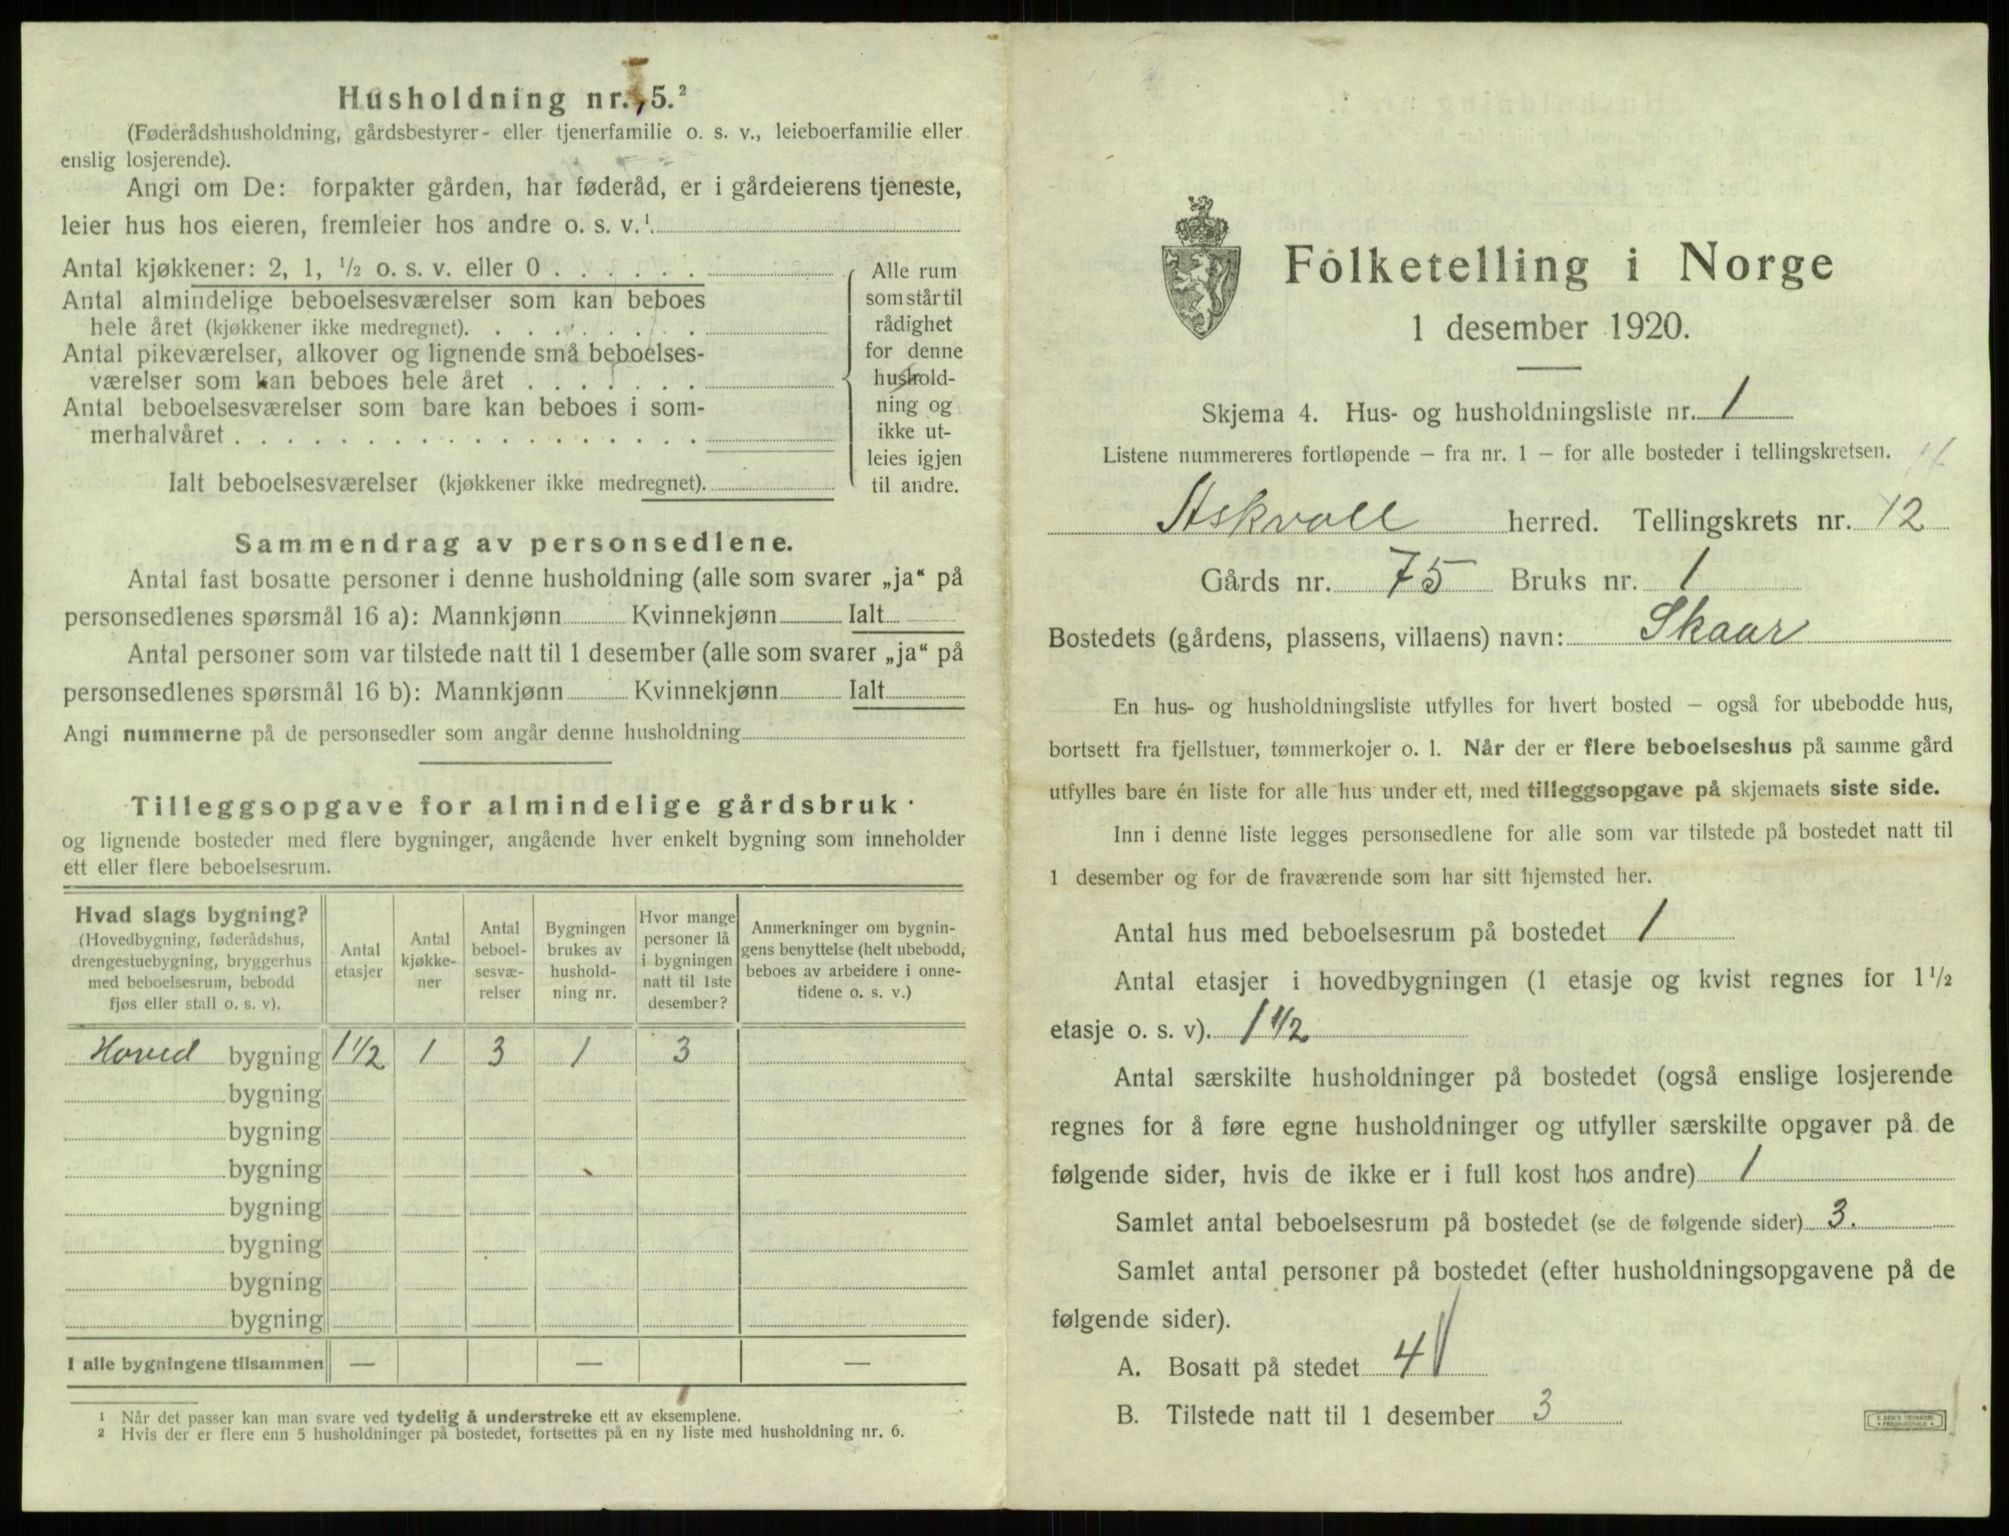 Husholdning nr. 5.²
(Føderådshusholdning, gårdsbestyrer- eller tjenerfamilie o. s. v., leieboerfamilie eller
enslig losjerende).
Angi om De: forpakter gården, har føderåd, er i gårdeierens tjeneste,
leier hus hos eieren, fremleier hos andre o. s. v.¹
Antal kjøkkener: 2, 1, ½ o. s. v. eller 0
Antal almindelige beboelsesværelser som kan beboes
hele året (kjøkkener ikke medregnet).
Antal pikeværelser, alkover og lignende små beboelses-
værelser som kan beboes hele året
Antal beboelsesværelser som bare kan beboes i som-
merhalvåret
Ialt beboelsesværelser (kjøkkener ikke medregnet).
Alle rum
som står til
rådighet
for denne
hushold-
ning og
ikke ut-
leies igjen
til andre.
Sammendrag av personsedlene.
Antal fast bosatte personer i denne husholdning (alle som svarer „ja“ på
personsedlenes spørsmål 16 a): Mannkjønn Kvinnekjønn Ialt
Antal personer som var tilstede natt til 1 desember (alle som svarer „ja“ på
personsedlenes spørsmål 16 b): Mannkjønn Kvinnekjønn Ialt
Angi nummerne på de personsedler som angår denne husholdning
Tilleggsopgave for almindelige gårdsbruk
og lignende bosteder med flere bygninger, angående hver enkelt bygning som inneholder
ett eller flere beboelsesrum.
Hvad slags bygning?
(Hovedbygning, føderådshus,
drengestuebygning, bryggerhus
med beboelsesrum, bebodd
fjøs eller stall o. s. v).
Antal
etasjer
Antal
kjøkke-
ner
Antal
beboel-
sesvæ-
relser
Bygningen
brukes av
hushold-
ning nr.
Hvor mange
personer lå
i bygningen
natt til 1ste
desember?
Anmerkninger om bygnin-
gens benyttelse (helt ubebodd,
beboes av arbeidere i onne-
tidene o. s. v.)
Hoved bygning 1 1/2 1 3 1 3
bygning
bygning
bygning
bygning
bygning
bygning
bygning
I alle bygningene tilsammen — — —
¹ Når det passer kan man svare ved tydelig å understreke ett av eksemplene.
² Hvis der er flere enn 5 husholdninger på bostedet, fortsettes på en ny liste med husholdning nr. 6.
Folketelling i Norge
1 desember 1920.
Skjema 4. Hus- og husholdningsliste nr. 1
Listene nummereres fortløpende – fra nr. 1 – for alle bosteder i tellingskretsen.
Askvoll herred. Tellingskrets nr. 12
Gårds nr. 75 Bruks nr. 1
Bostedets (gårdens, plassens, villaens) navn: Skaar
En hus- og husholdningsliste utfylles for hvert bosted – også for ubebodde hus,
bortsett fra fjellstuer, tømmerkojer o. l. Når der er flere beboelseshus på samme gård
utfylles bare én liste for alle hus under ett, med tilleggsopgave på skjemaets siste side.
Inn i denne liste legges personsedlene for alle som var tilstede på bostedet natt til
1 desember og for de fraværende som har sitt hjemsted her.
Antal hus med beboelsesrum på bostedet 1
Antal etasjer i hovedbygningen (1 etasje og kvist regnes for 1½
etasje o. s. v). 1 1/2
Antal særskilte husholdninger på bostedet (også enslige losjerende
regnes for å føre egne husholdninger og utfyller særskilte opgaver på de
følgende sider, hvis de ikke er i full kost hos andre) 1
Samlet antal beboelsesrum på bostedet (se de følgende sider) 3.
Samlet antal personer på bostedet (efter husholdningsopgavene på de
følgende sider).
A. Bosatt på stedet 4
B. Tilstede natt til 1 desember 3